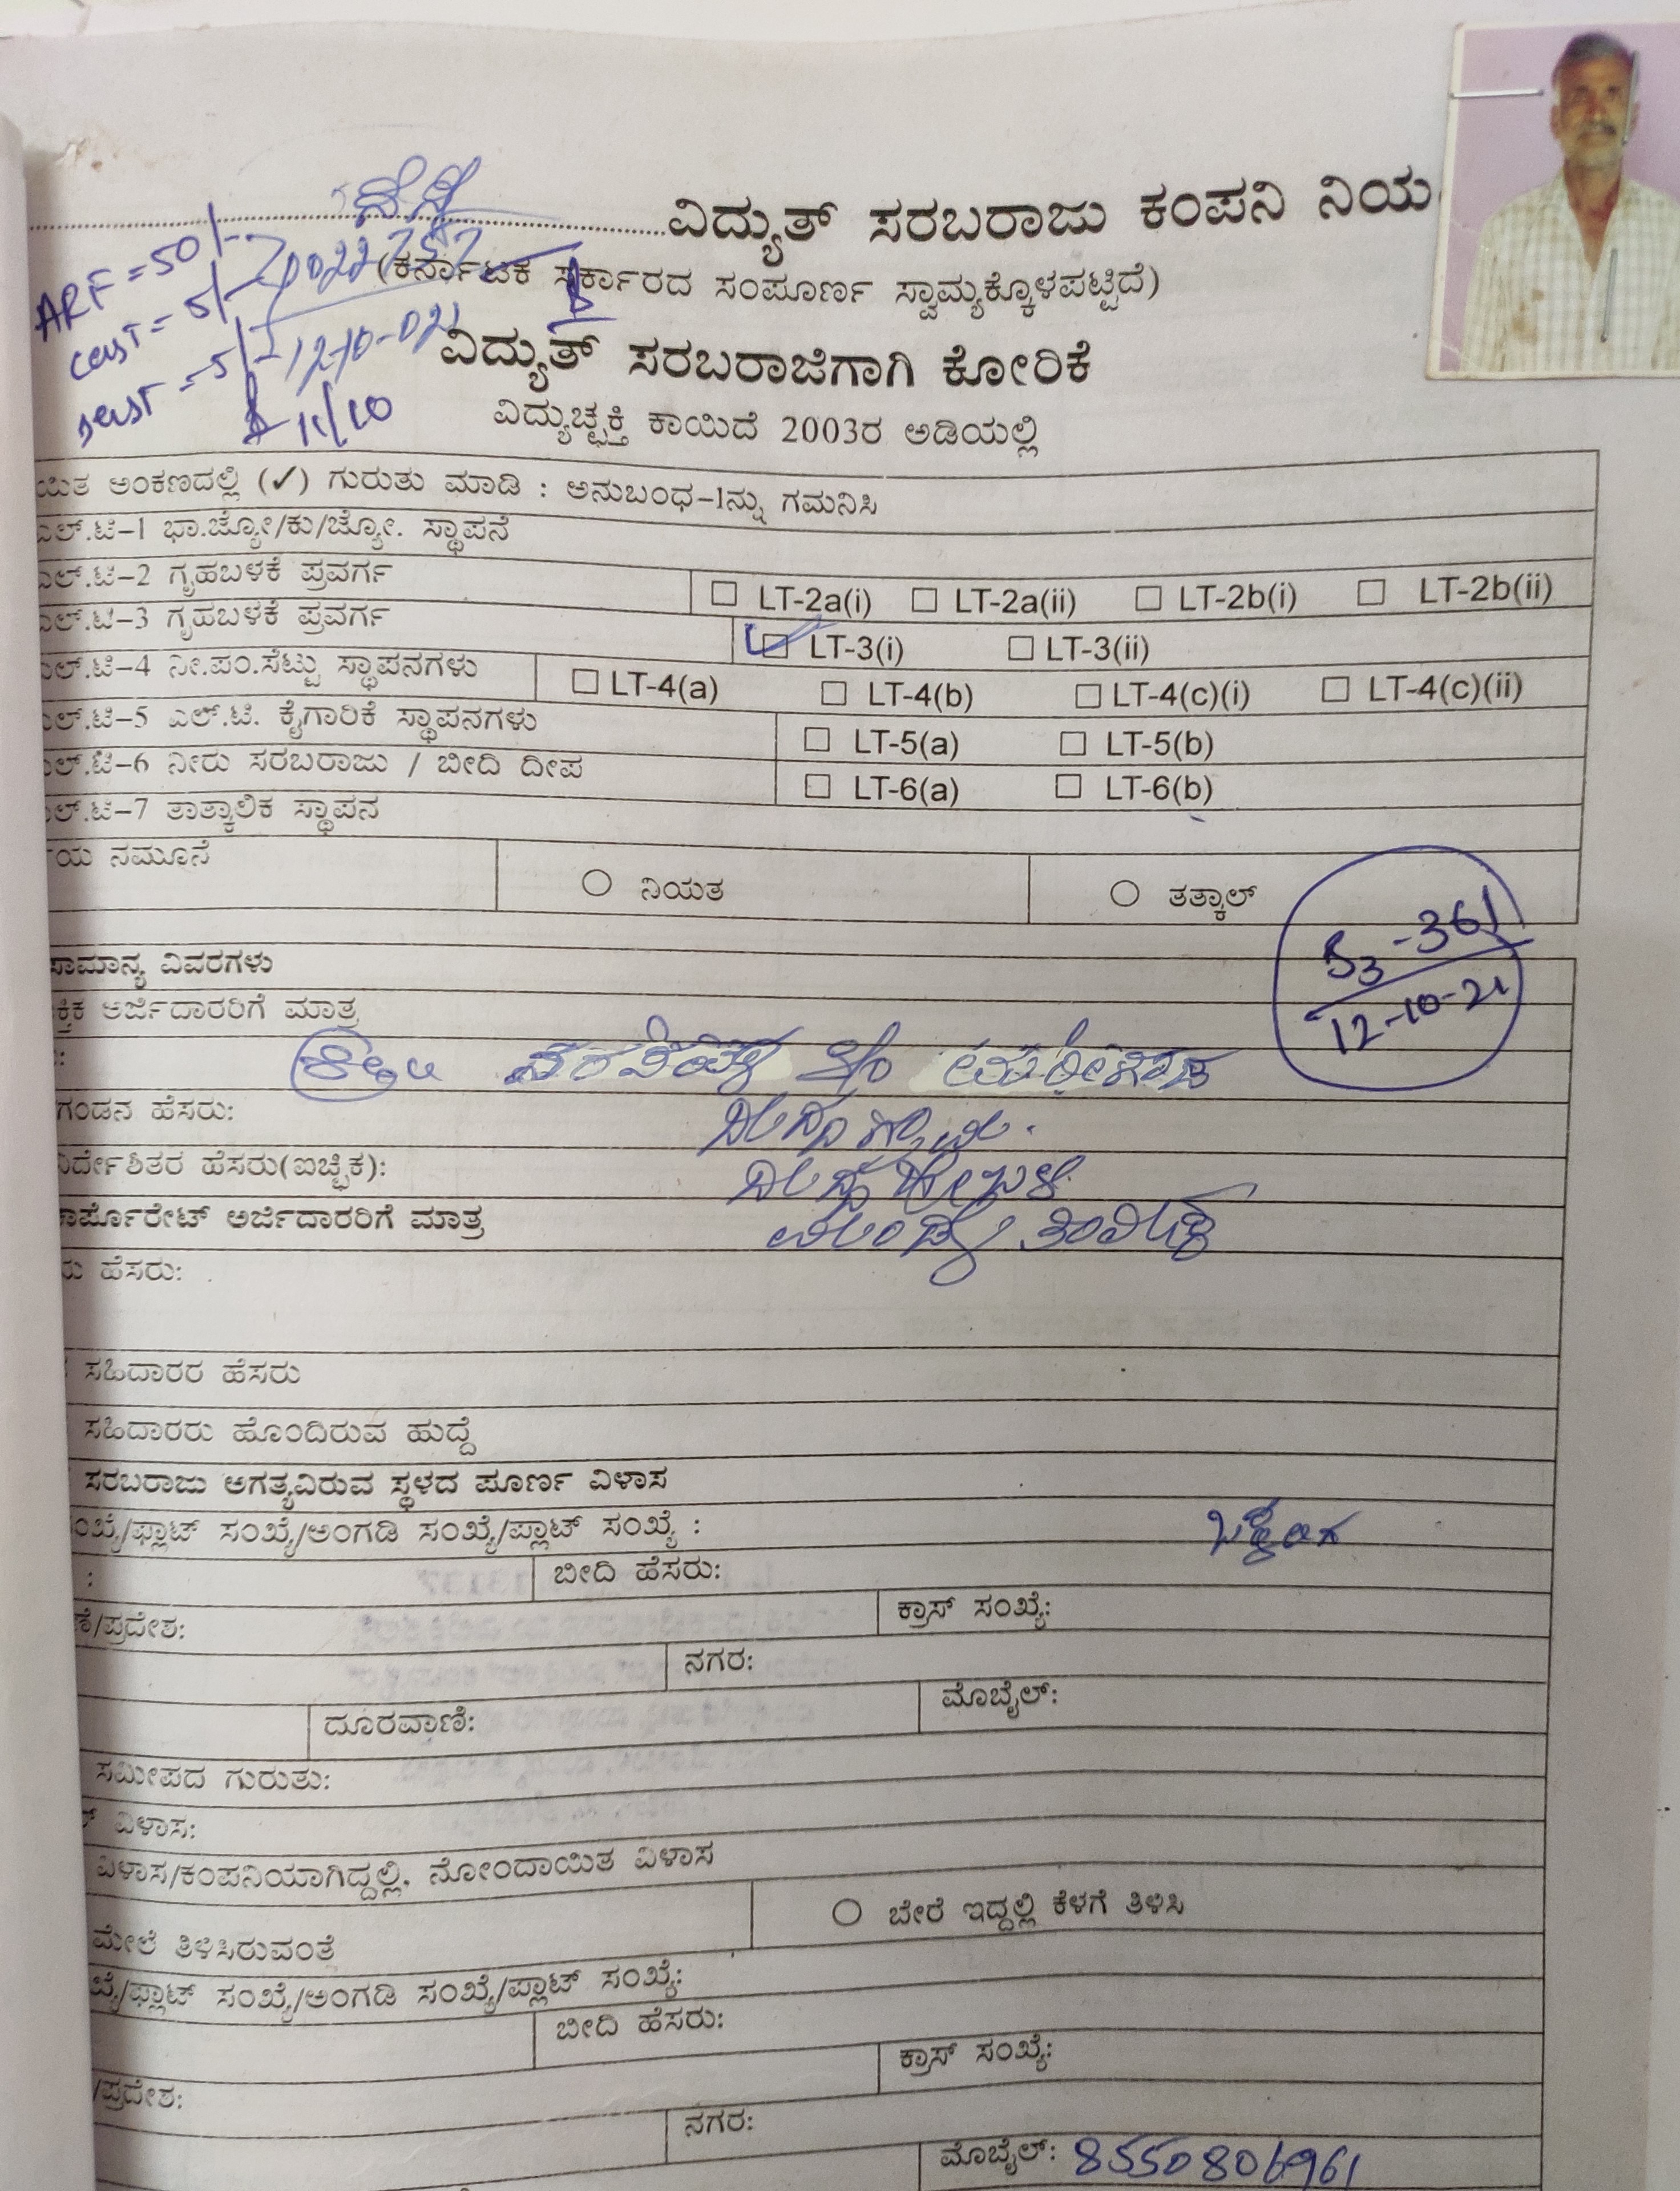 ವಿದ್ಯುತ್ ಸರಬರಾಜು ಕಂಪನಿ ನಿಯ
(ಕರ್ನಾಟಕ ಸರ್ಕಾರದ ಸಂಪೂರ್ಣ ಸ್ವಾಮ್ಯಕ್ಕೊಳಪಟ್ಟಿದೆ)
ARF = 50/-
ವಿದ್ಯುತ್ ಸರಬರಾಜಿಗಾಗಿ ಕೋರಿಕೆ
11/10
ವಿದ್ಯುಚ್ಛಕ್ತಿ ಕಾಯಿದೆ 2003ರ ಅಡಿಯಲ್ಲಿ
ಯಿತ ಅಂಕಣದಲ್ಲಿ (✓) ಗುರುತು ಮಾಡಿ : ಅನುಬಂಧ-1ನ್ನು ಗಮನಿಸಿ
ಎಲ್.ಟಿ-1 ಭಾ.ಜ್ಯೋ/ಕು/ಜ್ಯೋ. ಸ್ಥಾಪನೆ
ಎಲ್.ಟಿ-2 ಗೃಹಬಳಕೆ ಪ್ರವರ್ಗ LT-2a(i) LT-2a(ii) LT-2b(i) LT-2b(ii)
ಎಲ್.ಟಿ-3 ಗೃಹಬಳಕೆ ಪ್ರವರ್ಗ LT-3(i) LT-3(ii)
ಎಲ್.ಟಿ-4 ನೀ.ಪಂ.ಸೆಟ್ಟು ಸ್ಥಾಪನಗಳು LT-4(a) LT-4(b) LT-4(c)(i) LT-4(c)(ii)
ಎಲ್.ಟಿ-5 ಎಲ್.ಟಿ. ಕೈಗಾರಿಕೆ ಸ್ಥಾಪನಗಳು LT-5(a) LT-5(b)
ಎಲ್.ಟಿ-6 ನೀರು ಸರಬರಾಜು / ಬೀದಿ ದೀಪ LT-6(a) LT-6(b)
ಎಲ್.ಟಿ-7 ತಾತ್ಕಾಲಿಕ ಸ್ಥಾಪನ
ಯ ನಮೂನೆ ನಿಯತ ತತ್ಕಾಲ್
S3-361
12-10-21
ಸಾಮಾನ್ಯ ವಿವರಗಳು
ಕ್ತಿಕ ಅರ್ಜಿದಾರರಿಗೆ ಮಾತ್ರ
ಗಂಡನ ಹೆಸರು:
ನಿರ್ದೇಶಿತರ ಹೆಸರು(ಐಚ್ಛಿಕ):
ಕಾರ್ಪೊರೇಟ್ ಅರ್ಜಿದಾರರಿಗೆ ಮಾತ್ರ
ಯ ಹೆಸರು:
ಸಹಿದಾರರ ಹೆಸರು
ಸಹಿದಾರರು ಹೊಂದಿರುವ ಹುದ್ದೆ
ಸರಬರಾಜು ಅಗತ್ಯವಿರುವ ಸ್ಥಳದ ಪೂರ್ಣ ವಿಳಾಸ
ಸಂಖ್ಯೆ/ಫ್ಲಾಟ್ ಸಂಖ್ಯೆ/ಅಂಗಡಿ ಸಂಖ್ಯೆ/ಪ್ಲಾಟ್ ಸಂಖ್ಯೆ :
: ಬೀದಿ ಹೆಸರು:
ಣೆ/ಪ್ರದೇಶ: ಕ್ರಾಸ್ ಸಂಖ್ಯೆ:
ನಗರ:
ದೂರವಾಣಿ: ಮೊಬೈಲ್:
ಸಮೀಪದ ಗುರುತು:
ಲ್ ವಿಳಾಸ:
ವಿಳಾಸ/ಕಂಪನಿಯಾಗಿದ್ದಲ್ಲಿ, ನೋಂದಾಯಿತ ವಿಳಾಸ
ಮೇಲೆ ತಿಳಿಸಿರುವಂತೆ ಬೇರೆ ಇದ್ದಲ್ಲಿ ಕೆಳಗೆ ತಿಳಿಸಿ
ಖ್ಯೆ/ಫ್ಲಾಟ್ ಸಂಖ್ಯೆ/ಅಂಗಡಿ ಸಂಖ್ಯೆ/ಪ್ಲಾಟ್ ಸಂಖ್ಯೆ:
ಬೀದಿ ಹೆಸರು:
/ಪ್ರದೇಶ: ಕ್ರಾಸ್ ಸಂಖ್ಯೆ:
ನಗರ:
ಮೊಬೈಲ್: 8550806961